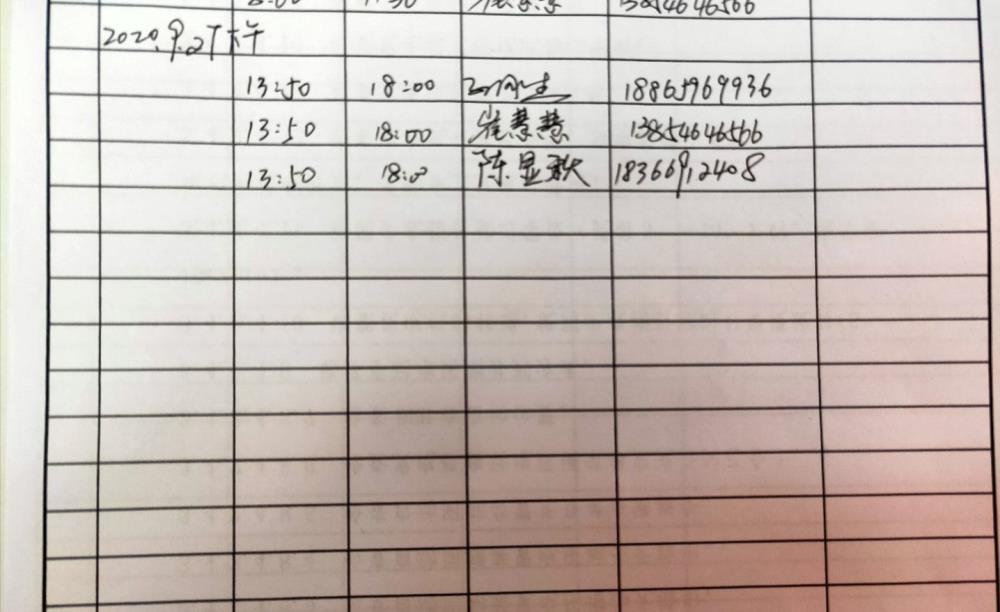 2020.9.27下午
13:50 18:00 18865969936
13:50 18:00 崔慧慧 13854646566
13:50 18:00 陈显耿 18366912408